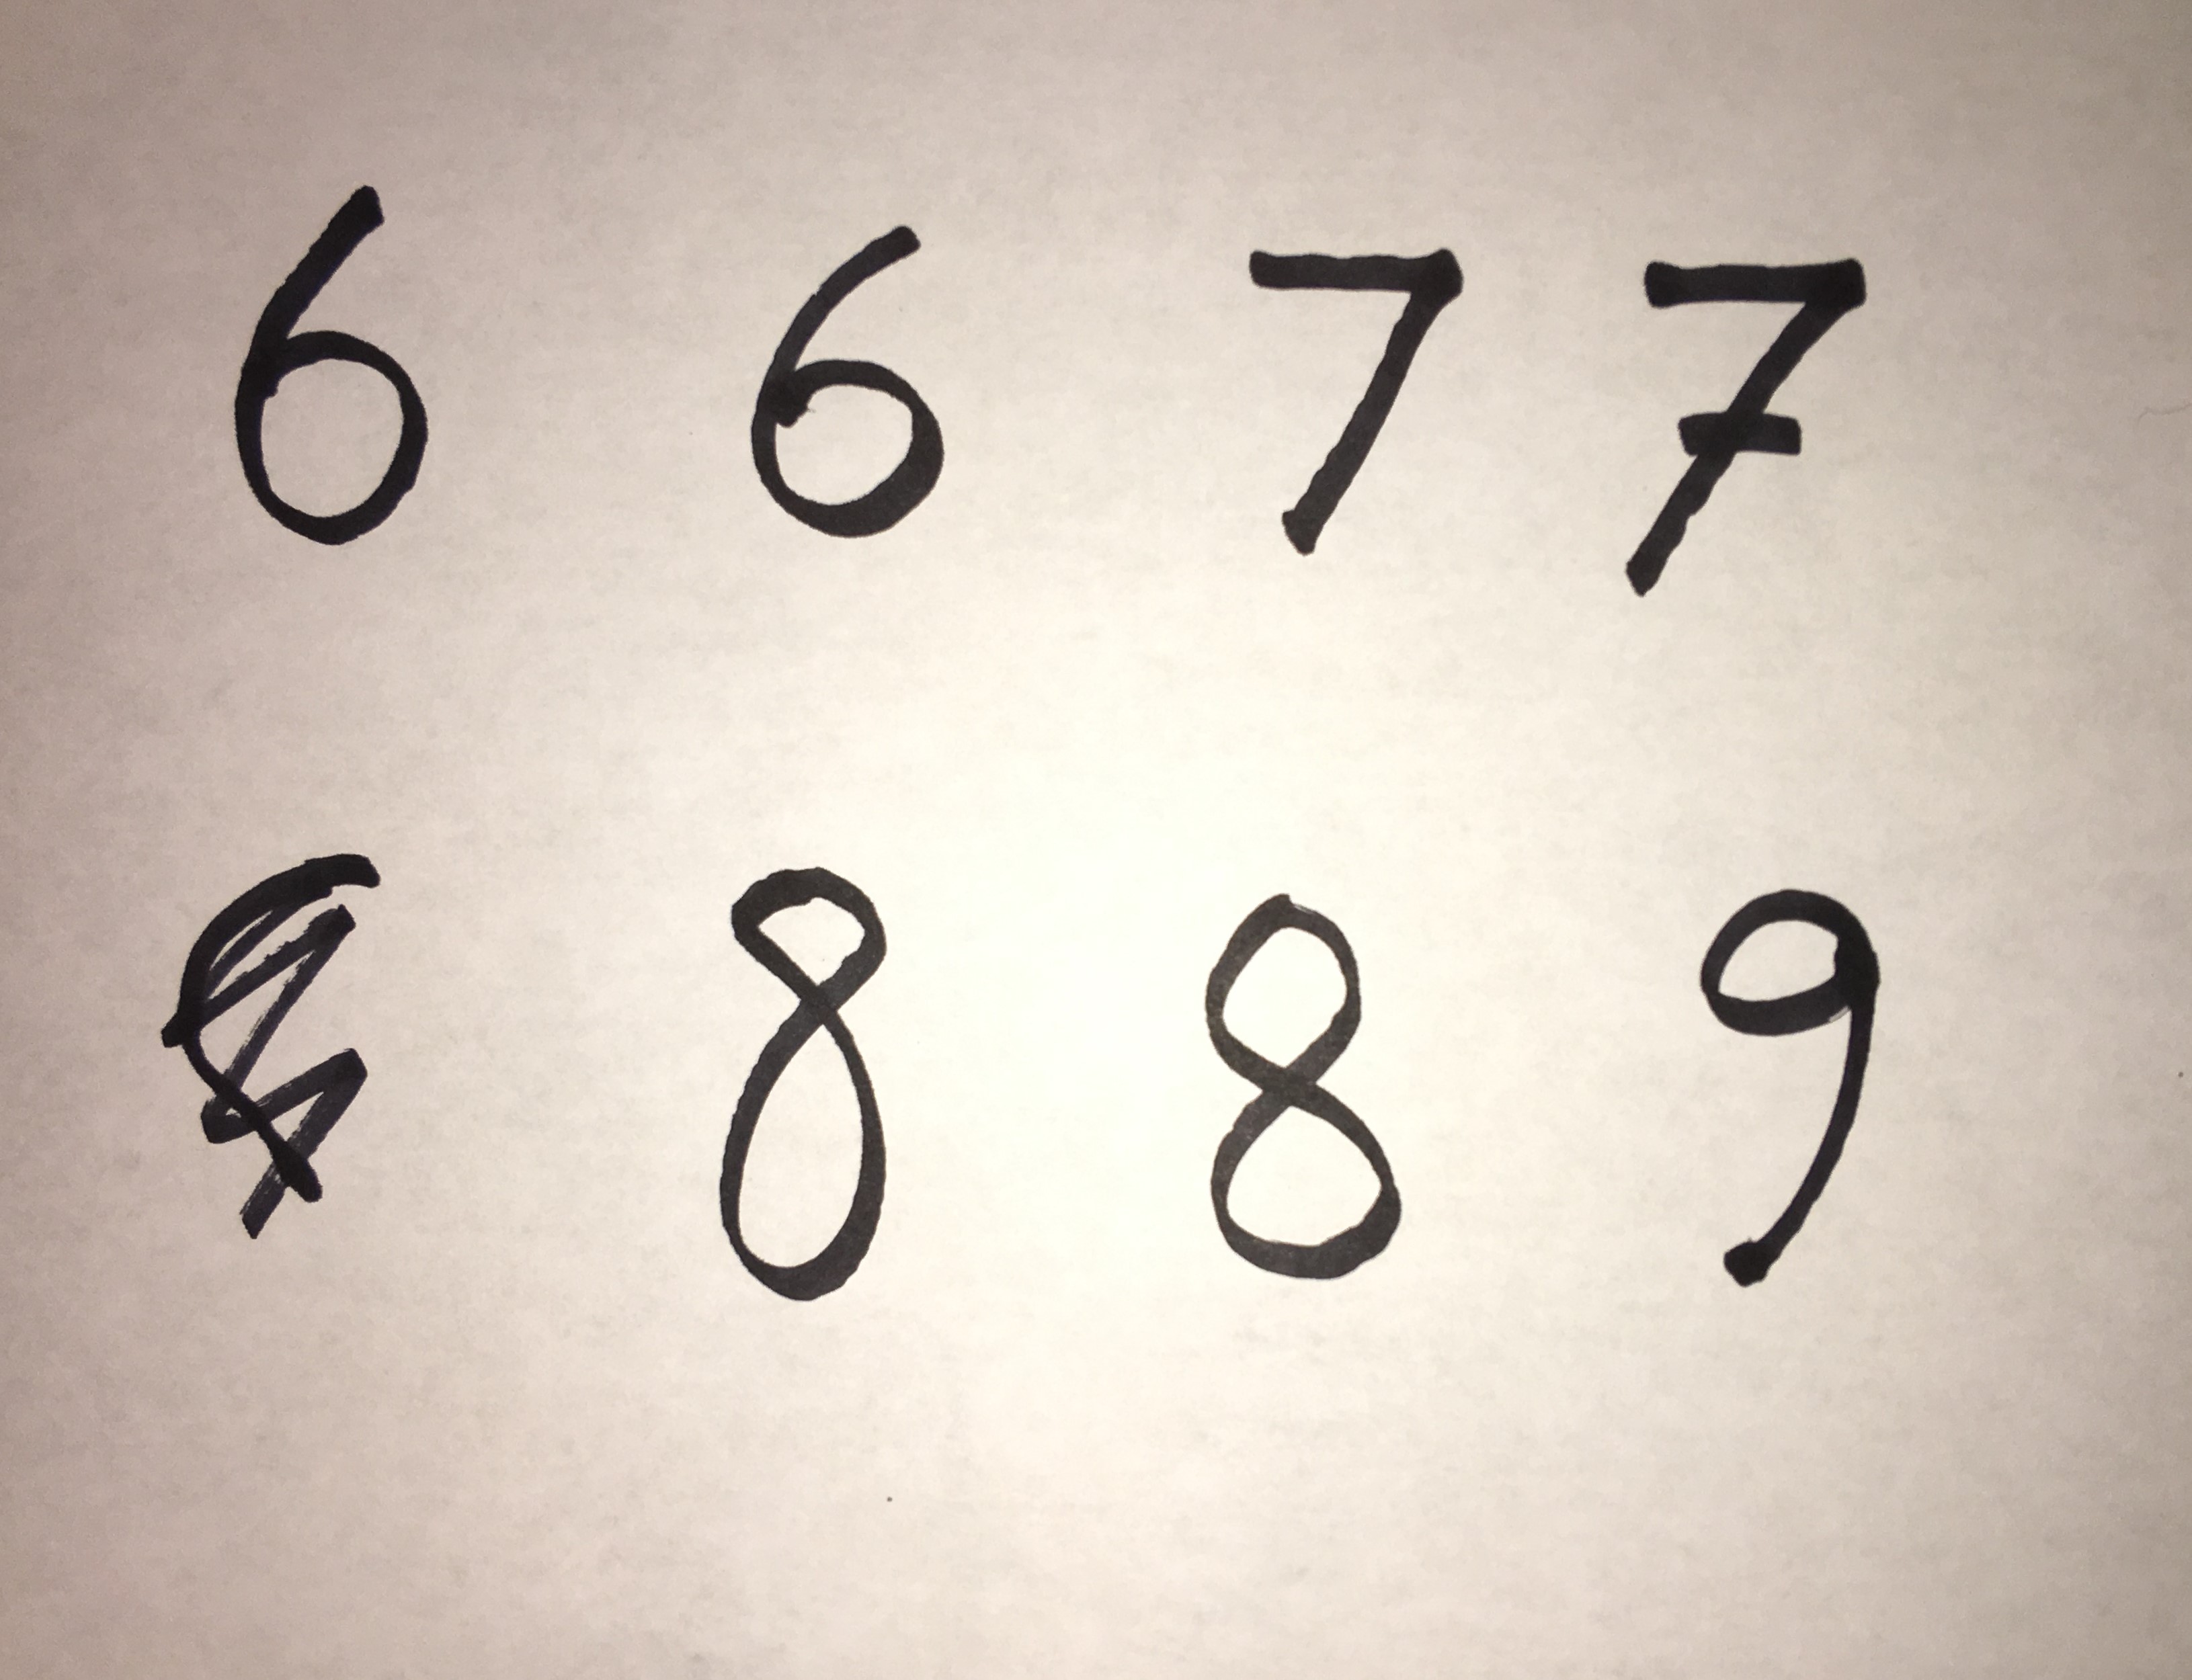 6 6 7 7
8 8 9